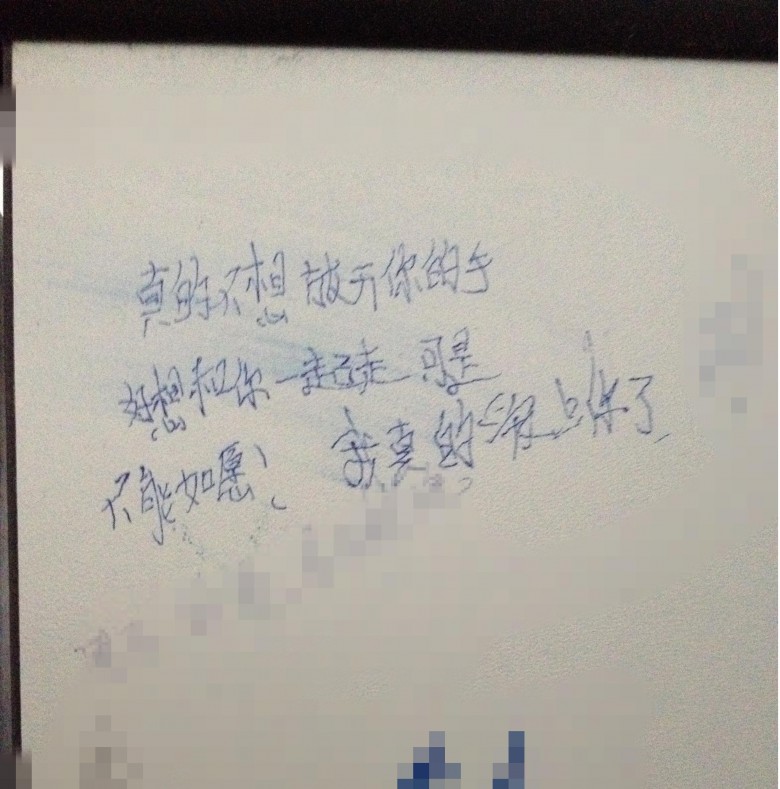 真的不想放开你的手
好想和你一起走 可是
不能如愿! 我真的爱上你了